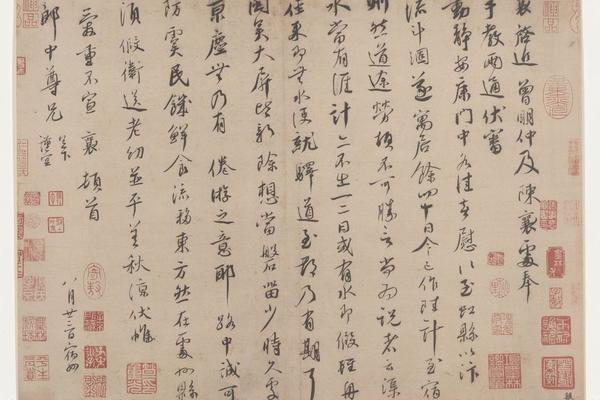 襄啓近曾明仲及陳襄處奉
手教兩通伏審
動靜安康門中各佳喜慰〻至虹縣以汴
流斗涸遂寓居餘四十日今已作陸計至宿
州然道途勞頓不可勝言當爲說者云渠
水當有涯計亦不出一二日或有水即假輕舟
徑來即無水便就驛道至都乃有期耳
聞美大屏跡郭除想當盤留少時久處
京塵無乃有倦游之意耶路中誠可
防虞民饑鮮食流移東方然在處州縣
須假衛送老幼並平善秋涼伏惟
愛重不宣襄頓首
郎中尊兄足下
謹空
八月廿三日宿州